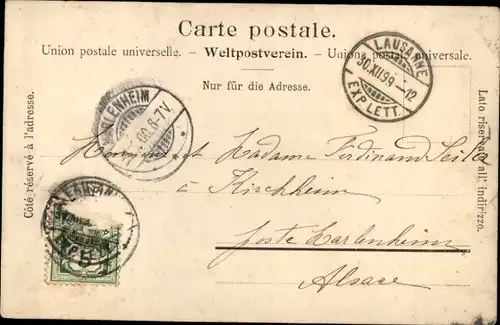 Carte postale.
Union postale universelle. – Weltpostverein. – Unione postale universale.
Nur für die Adresse.
Côté réservé à l'adresse.
Lato riservato all' indirizzo.
LAUSANNE
30.XII.99.–12
EXP. LETT.
LENHEIM
6-7V.
Monsieur et Madame Ferdinand Seitz
à Kirchheim
poste Marlenheim
Alsace
LAUSANNE
5